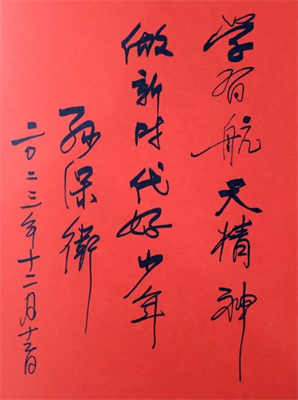 学習航天精神
做新时代好少年
孙保衛
二〇二三年十二月十二日